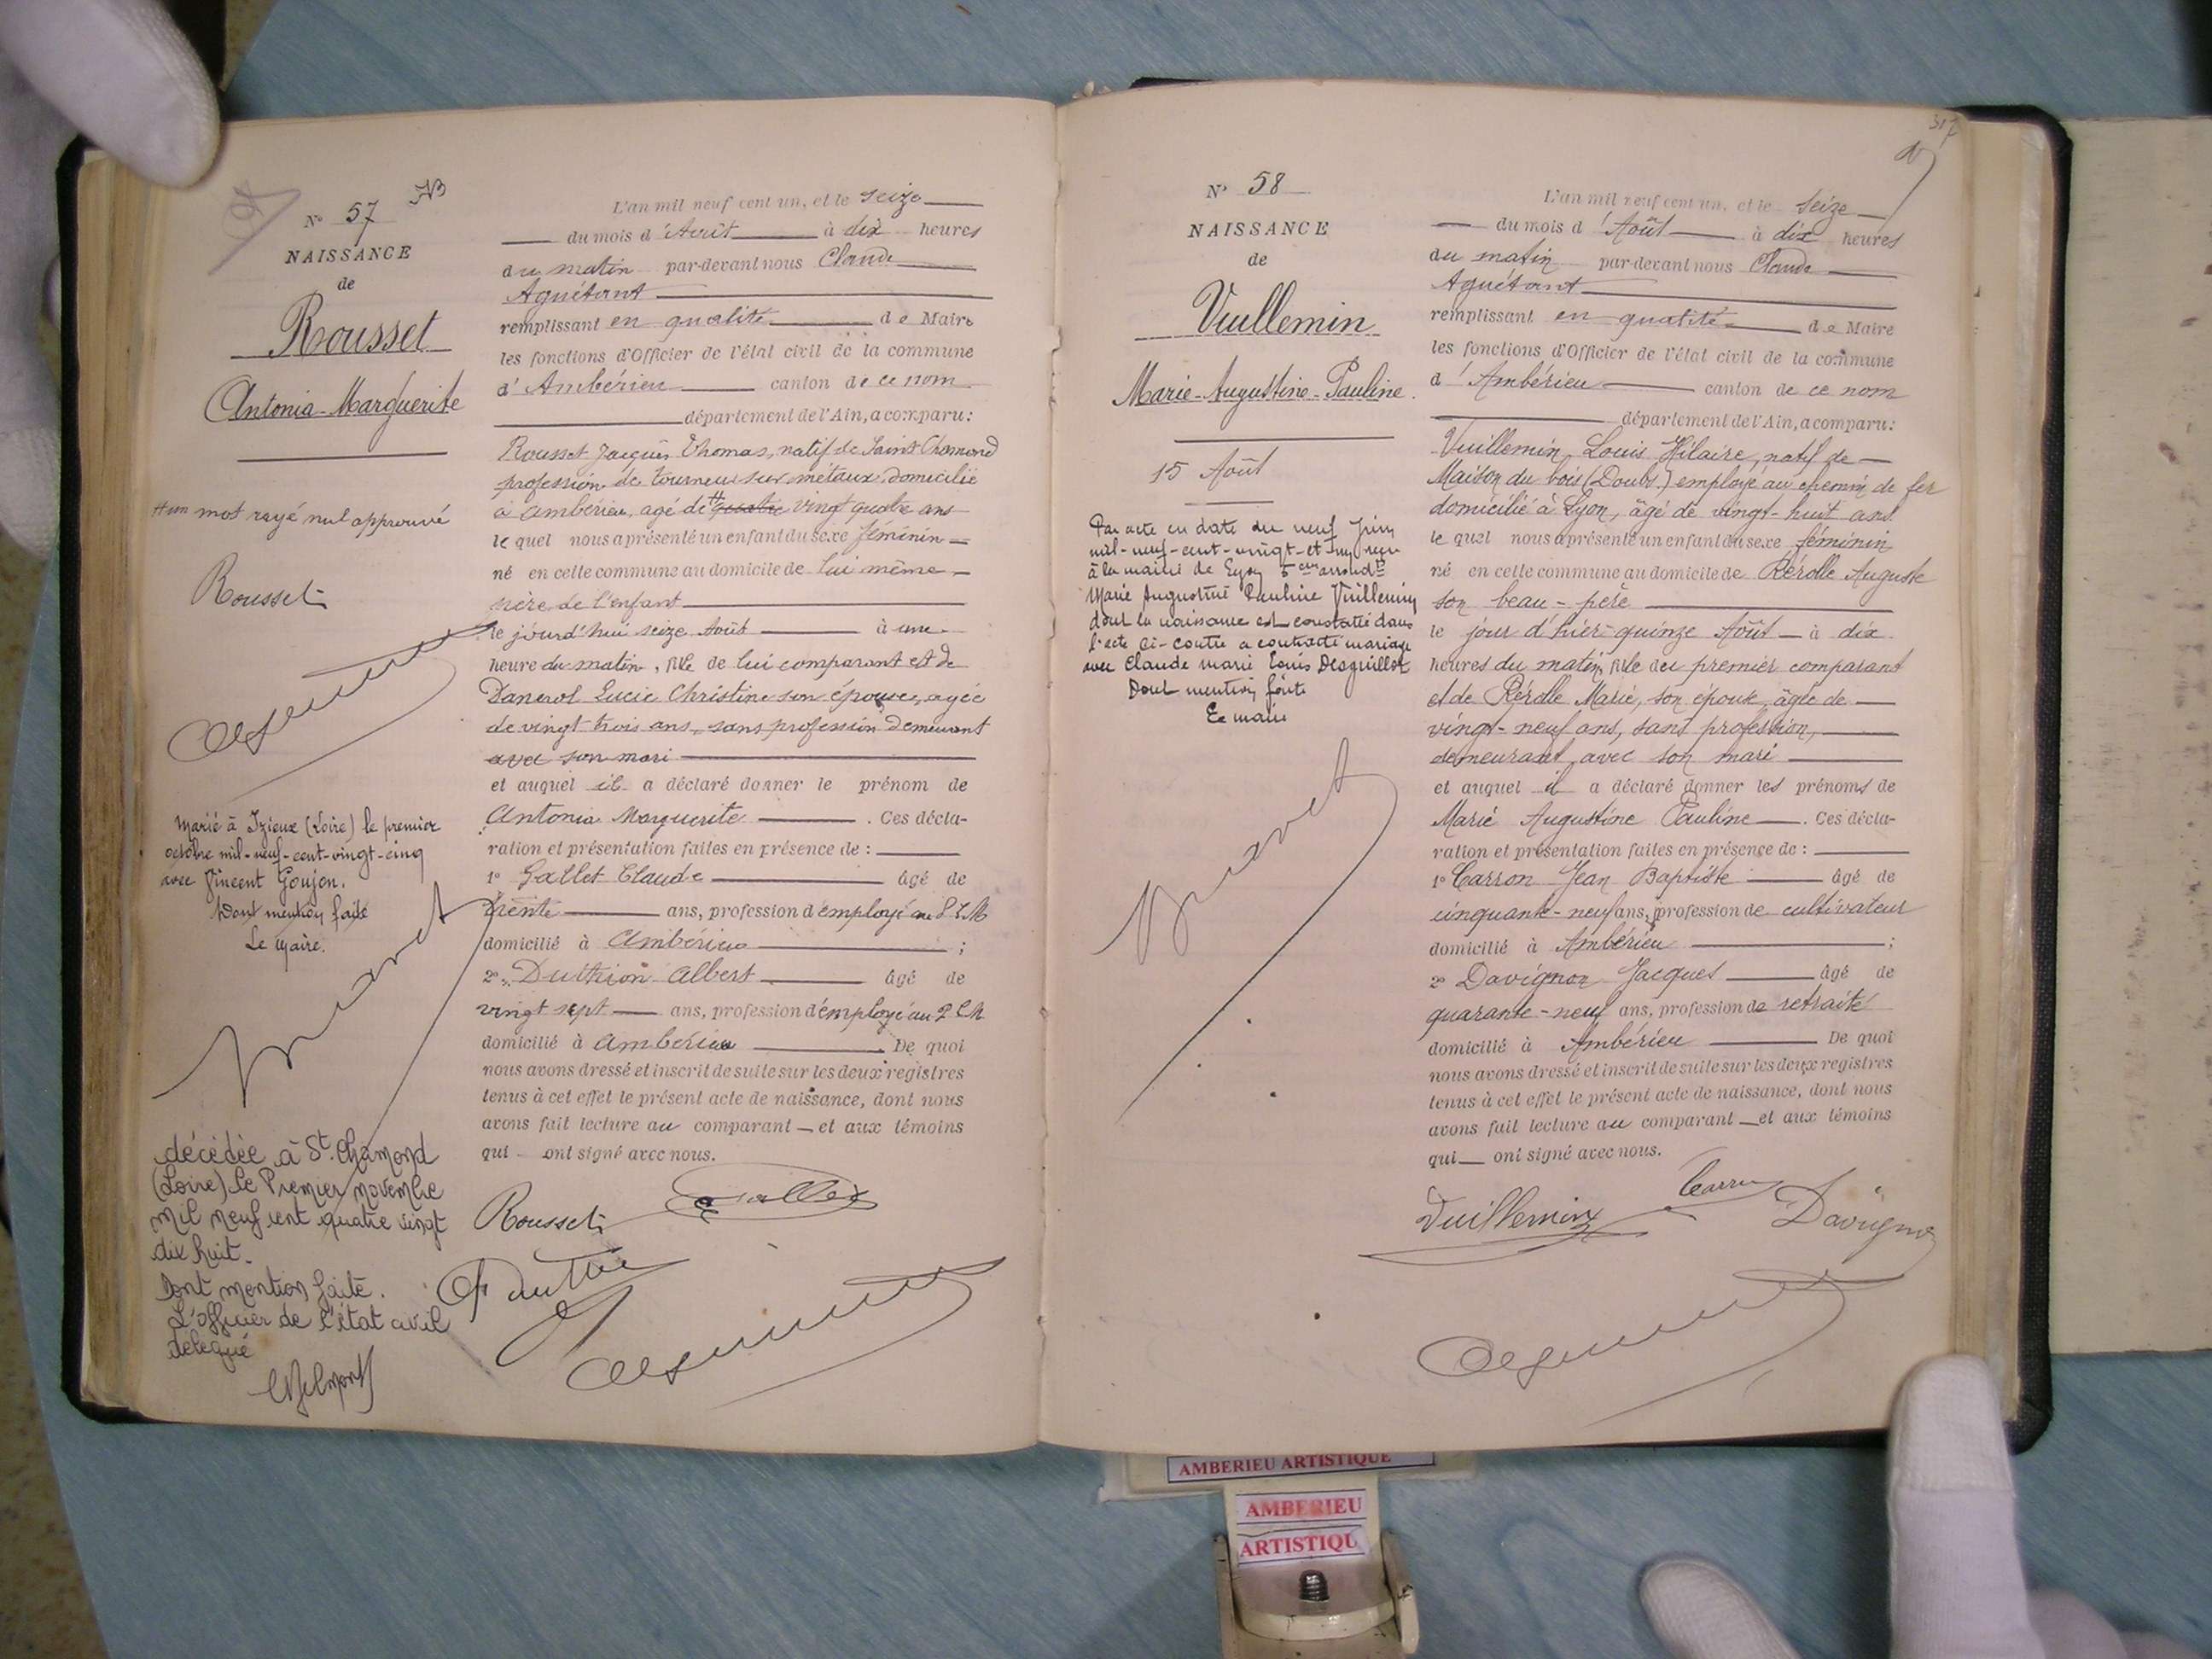 N° 57
NAISSANCE
de
Rousset
Antonia-Marguerite
un mot rayé nul approuvé
Rousset
Marié à Izieux (Loire) le premier
octobre mil-neuf-cent-vingt-cinq
avec Vincent Goujon.
Dont mention faite
Le Maire.
décédée à St. Chamond
(Loire) le Premier novembre
mil neuf cent quatre vingt
dix huit.
Dont mention faite.
L'officier de l'état civil
délégué
L'an mil neuf cent un, et le seize
du mois d'Août à dix heures
du matin par-devant nous Claude
Aguétant
remplissant en qualité de Maire
les fonctions d'Officier de l'état civil de la commune
d'Ambérieu canton de ce nom
département de l'Ain, a comparu:
Rousset Jacques Thomas, natif de Saint Chamond
profession de tourneur sur métaux, domicilié
à Ambérieu, agé de quatre vingt quatre ans
le quel nous a présenté un enfant du sexe féminin
né en cette commune au domicile de lui même
père de l'enfant
le jourd'hui seize Août à une
heure du matin, fille de lui comparant et de
Lucie Christine son épouse, agée
de vingt trois ans, sans profession demeurant
avec son mari
et auquel il a déclaré donner le prénom de
Antonia Marguerite. Ces décla-
ration et présentation faites en présence de :
1° Gallet Claude âgé de
trente ans, profession d'employé au P.L.M
domicilié à Ambérieu ;
2° Duthion Albert âgé de
vingt sept ans, profession d'employé au P L M
domicilié à Ambérieu. De quoi
nous avons dressé et inscrit de suite sur les deux registres
tenus à cet effet le présent acte de naissance, dont nous
avons fait lecture au comparant et aux témoins
qui ont signé avec nous.
Rousset Gallet
317
N° 58
NAISSANCE
de
Vuillemin
Marie-Augustine-Pauline.
15 Août
Par acte en date du neuf Juin
mil-neuf-cent-vingt-et-un, reçu
à la mairie de Lyon 5eme arrondt
Marie Augustine Pauline Vuillemin
dont la naissance est constatée dans
l'acte ci-contre a contracté mariage
avec Claude Marie Louis Desguillot
Dont mention faite
Le maire
L'an mil neuf cent un, et le seize
du mois d'Août à dix heures
du matin par-devant nous Claude
Aguétant
remplissant en qualité de Maire
les fonctions d'Officier de l'état civil de la commune
d'Ambérieu canton de ce nom
département de l'Ain, a comparu:
Vuillemin Louis Hilaire, natif de
Maison du bois (Doubs) employé au chemin de fer
domicilié à Lyon, âgé de vingt-huit ans
le quel nous a présenté un enfant du sexe féminin
né en cette commune au domicile de Rérolle Auguste
son beau-père
le jour d'hier quinze Août à dix
heures du matin, fille du premier comparant
et de Rérolle Marie, son épouse, âgée de
vingt-neuf ans, sans profession,
demeurant avec son mari
et auquel il a déclaré donner les prénoms de
Marie Augustine Pauline. Ces décla-
ration et présentation faites en présence de :
1° Carron Jean Baptiste âgé de
cinquante-neuf ans, profession de cultivateur
domicilié à Ambérieu ;
2° Davignon Jacques âgé de
quarante-neuf ans, profession de retraité
domicilié à Ambérieu De quoi
nous avons dressé et inscrit de suite sur les deux registres
tenus à cet effet le présent acte de naissance, dont nous
avons fait lecture au comparant et aux témoins
qui ont signé avec nous.
Vuillemin Carron Davignon
AMBERIEU ARTISTIQUE
AMBERIEU
ARTISTIQU